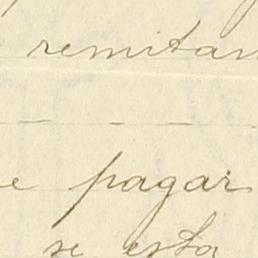 remitan
e pagar
se esta